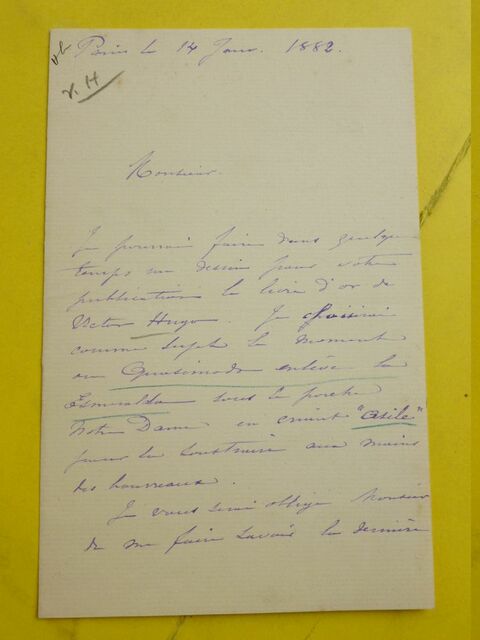 Paris le 14 Janv. 1882.
V. H
Monsieur.
Je pourrai faire dans quelque
temps un dessin pour votre
publication le livre d'or de
Victor Hugo. Je choisirai
comme sujet le moment
ou Quasimodo enlève la
Esmeralda sous le porche
Notre Dame en criant "asile"
pour la soustraire aux mains
des bourreaux.
Je vous serai obligé Monsieur
de me faire savoir la dernière